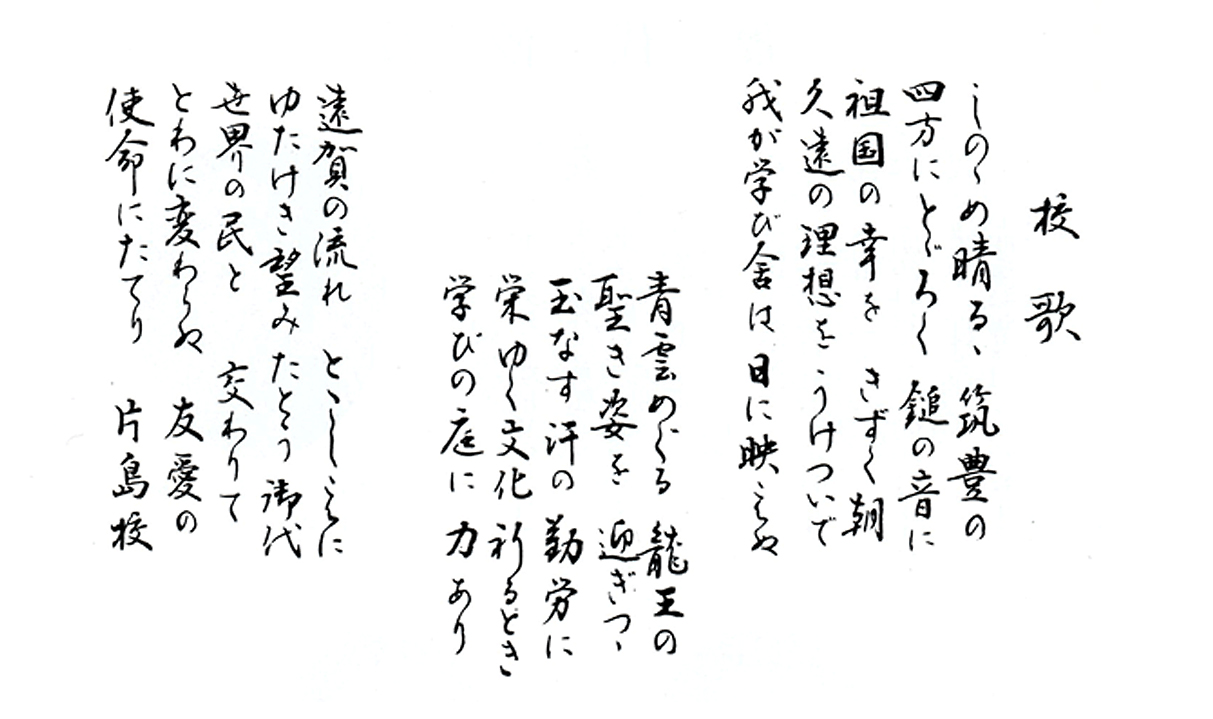 校歌
しのゝめ晴るゝ 筑豊の
四方にとゞろく 鎚の音に
祖国の幸を きずく朝
久遠の理想を うけついで
我が学び舎は 日に映えぬ
青雲めぐる 龍王の
聖き姿を 迎ぎつゝ
玉なす汗の 勤労に
栄ゆく文化 祈るとき
学びの庭に 力あり
遠賀の流れ とゝしえに
ゆたけき望み たとう 御代
世界の民と 交わりて
とわに変わらぬ 友愛の
使命にたてり 片島校